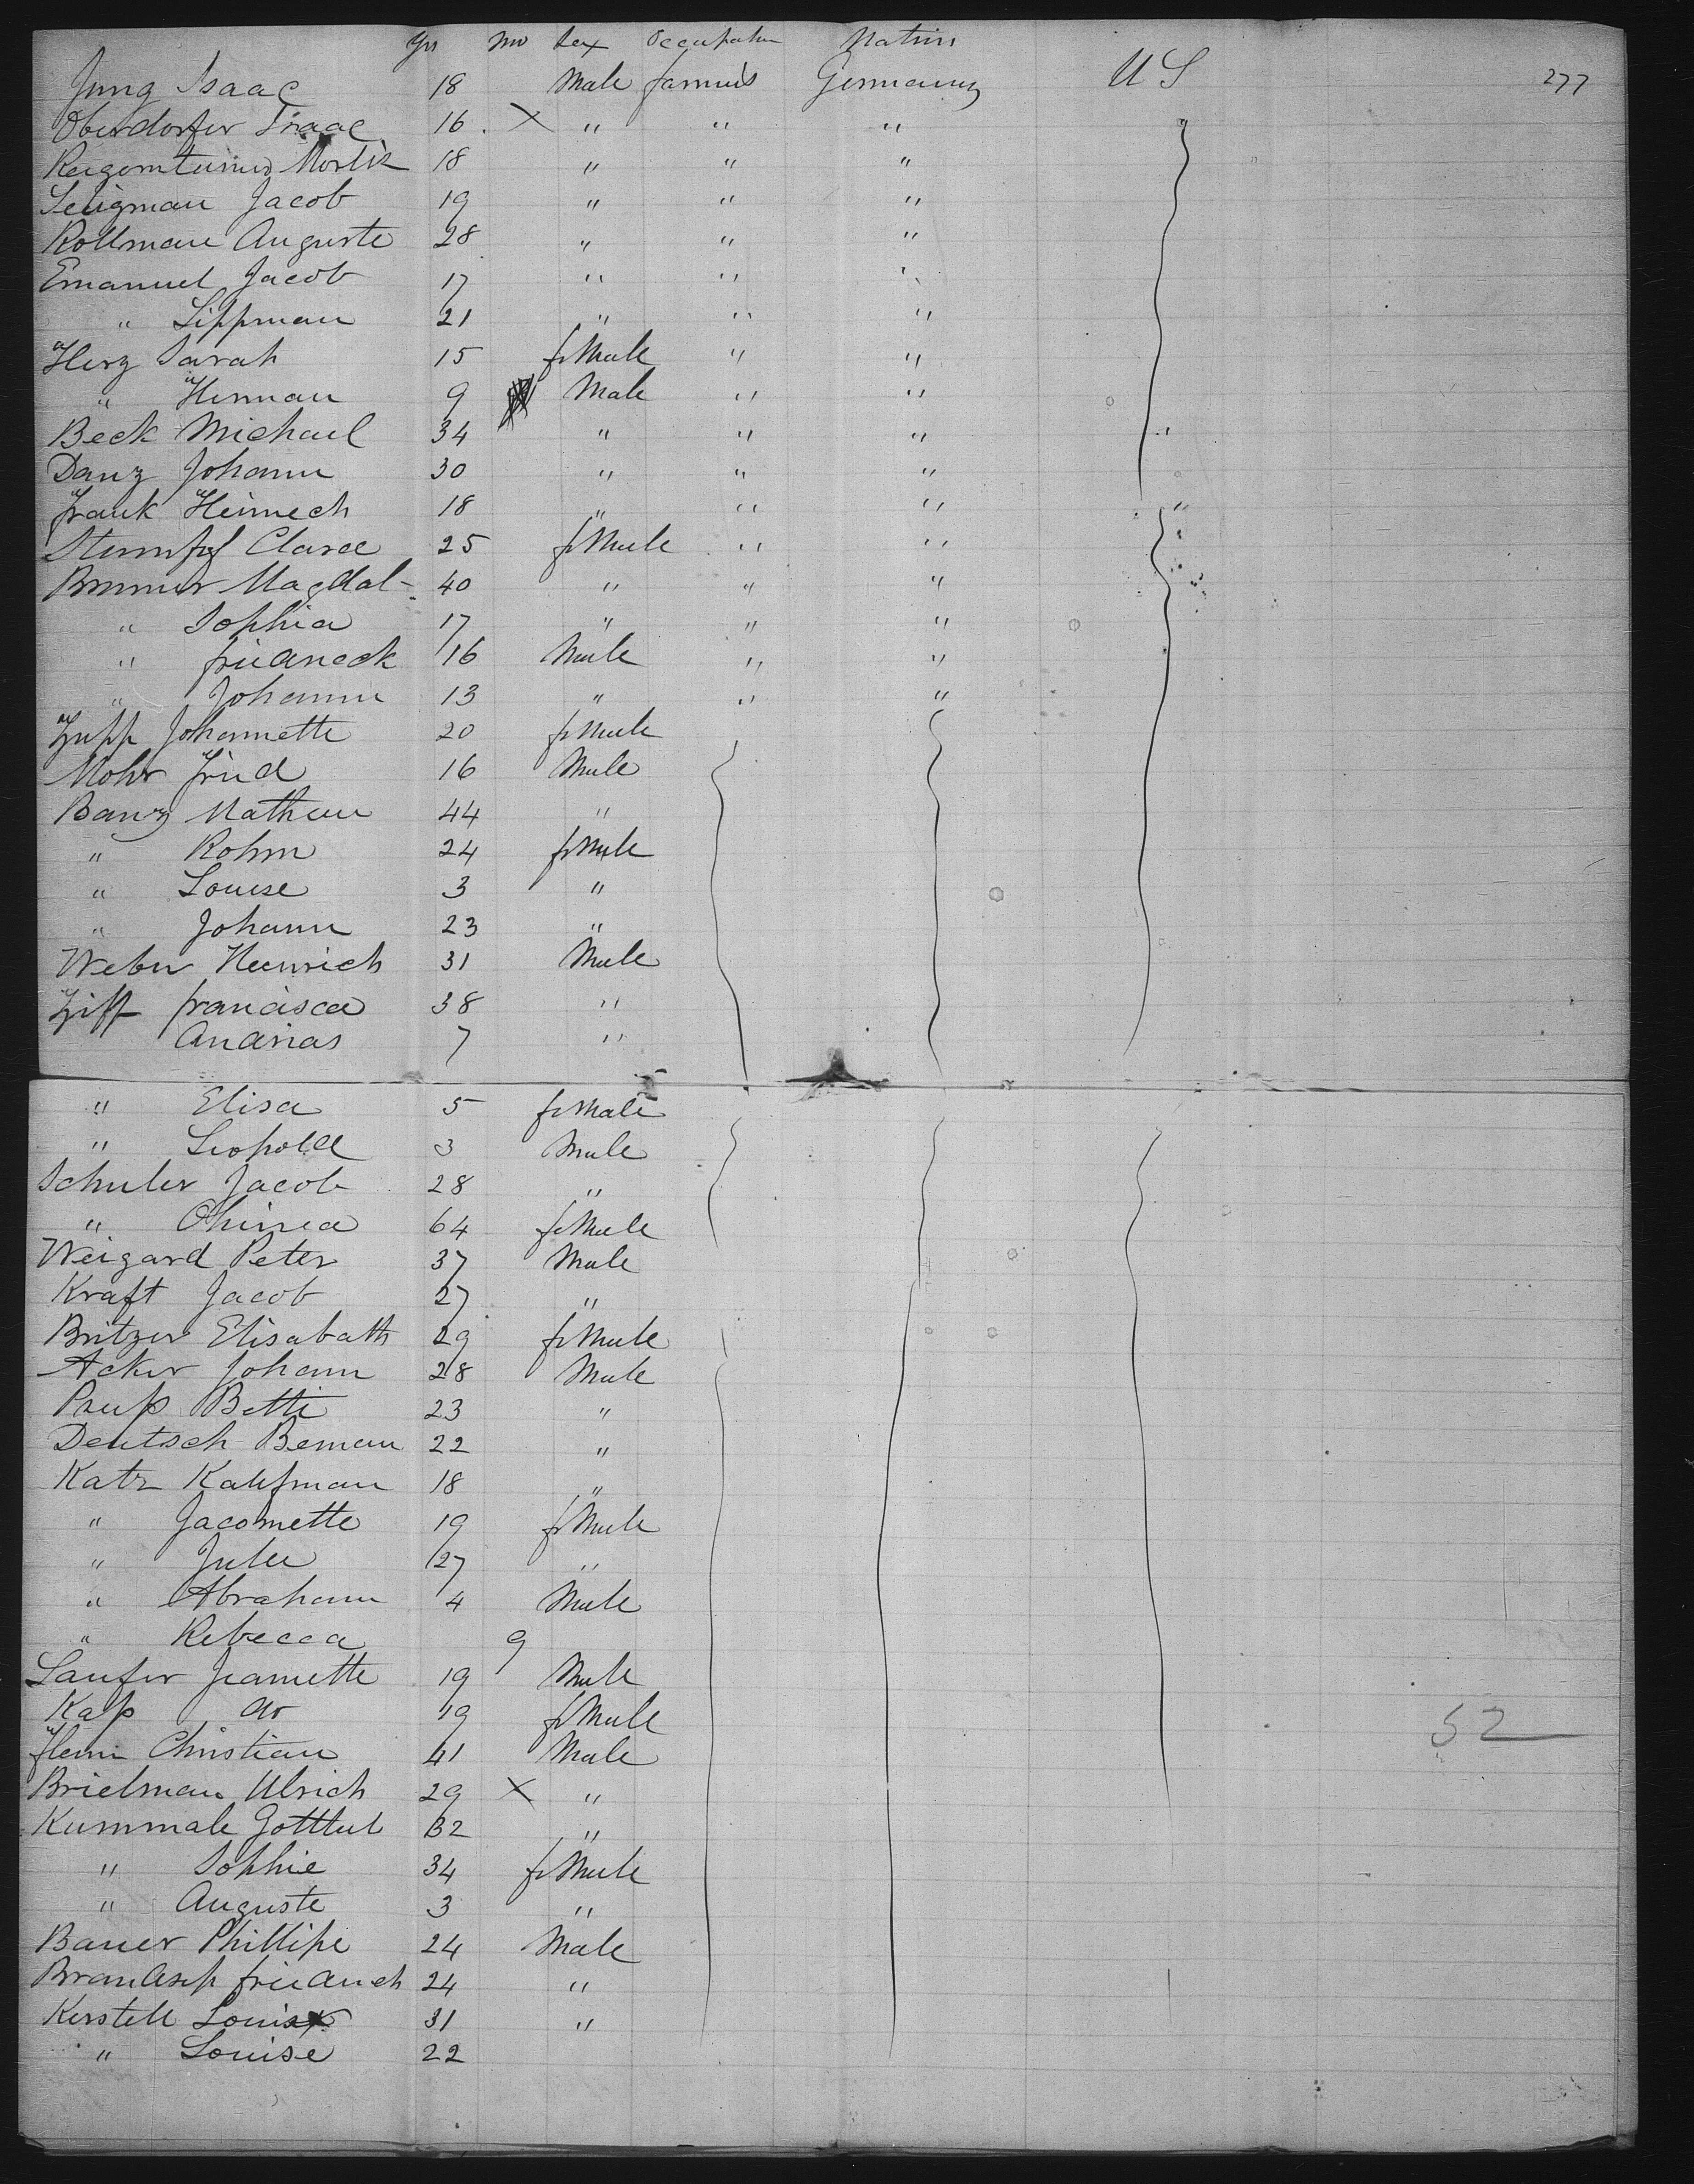 Yrs Mo Sex Occupation Nation
Jung Isaac 18 Male farmers Germany U S 277
Oberdorfer Isaac 16 X " " "
Morlik 18 " " "
Seligman Jacob 19 " " "
Rollman Auguste 28 " " "
Emanuel Jacob 17 " " "
" Lippman 21 " " "
Herz Sarah 15 feMale " "
" Herman 9 Male " "
Beck Michael 34 " " "
Danz Johann 30 " " "
Frank Heinrich 18 " " "
Clara 25 feMale " "
Brunner Magdal- 40 " " "
" Sophia 17 " " "
" friederick 16 Male " "
" Johann 13 " " "
Zupp Johannette 20 feMale
Mohr Fried 16 Male
Banz Matheus 44 "
" 24 feMale
" Louise 3 "
" Johann 23 "
Weber Heinrich 31 Male
Ziff francisca 38 "
Andrias 7 "
" Elisa 5 feMale
" Leopold 3 Male
Schuler Jacob 28 "
" 64 feMale
Weigard Peter 37 Male
Kraft Jacob 27 "
Britzer Elisabath 29 feMale
Acker Johann 28 Male
Betti 23 "
Deutsch Beman 22 "
Katz Kaufman 18 "
" Jacomette 19 feMale
" Julie 27 "
" Abraham 4 Male
" Rebecca 9
Laufer Jeanette 19 Male
Kaß do 19 feMale
Christian 41 Male 52
Brielman Ulrich 29 X "
Kummale Gottlieb 32 "
" Sophie 34 feMale
" Auguste 3 "
Bauer Phillipe 24 Male
friederich 24 "
Kerstell Louis 31 "
" Louise 22